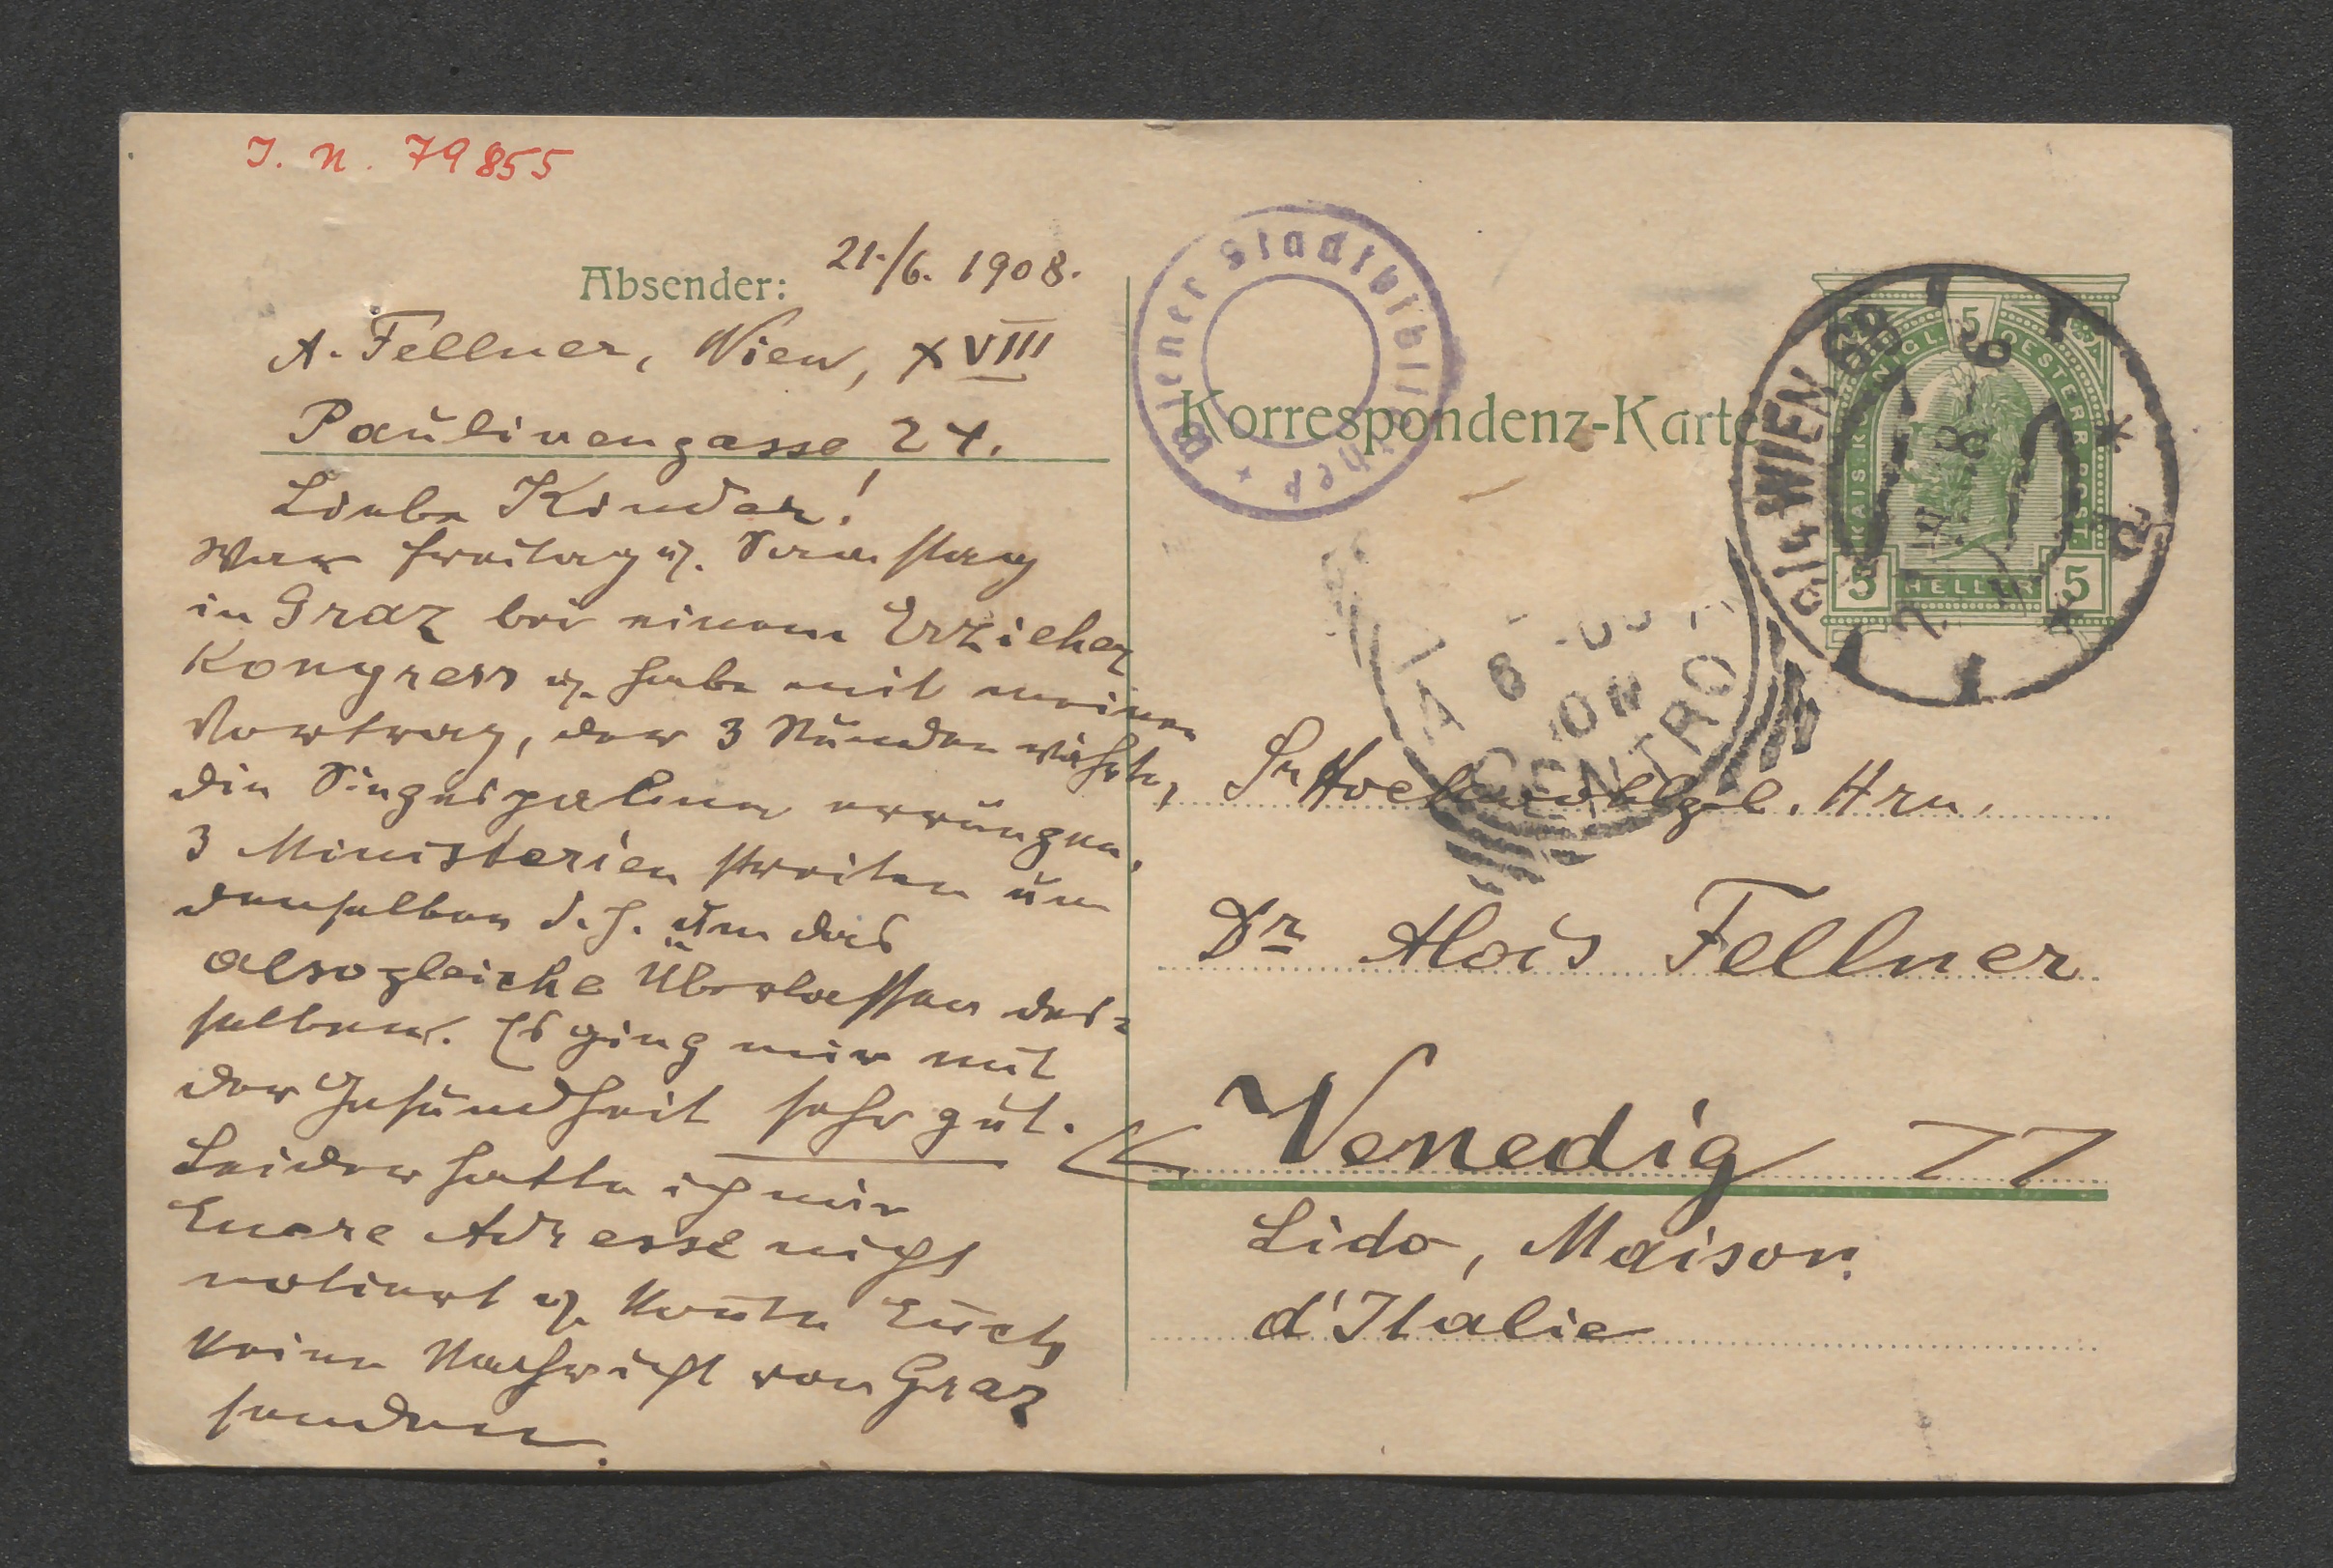 I. N. 79855
Absender: 21./6. 1908.
A. Fellner, Wien, XVIII
Paulinengasse 24.
Liebe Kinder!
War Freitag u. Samstag
in Graz bei einem Erzieher
Kongress u. habe mit meinem
Vortrag, der 3 Stunden währte,
die Siegespalme errungen.
3 Ministerien streiten um
denselben d. h. um das
alsogleiche Überlassen des-
selben. Es ging mir mit
der Gesundheit sehr gut.
Leider hatte ich mir
Euere Adresse nicht
notiert u. konnte Euch
keine Nachricht von Graz
senden.
Wiener Stadtbibliothek
Korrespondenz-Karte
KAIS. KÖNIGL. OESTERR. POST
5
5 HELLER 5
9/4 WIEN 68
CENTRO
Sr Hochwohlgeb. Hrn.
Dr Alois Fellner
Venedig
Lido, Maison
d'Italie